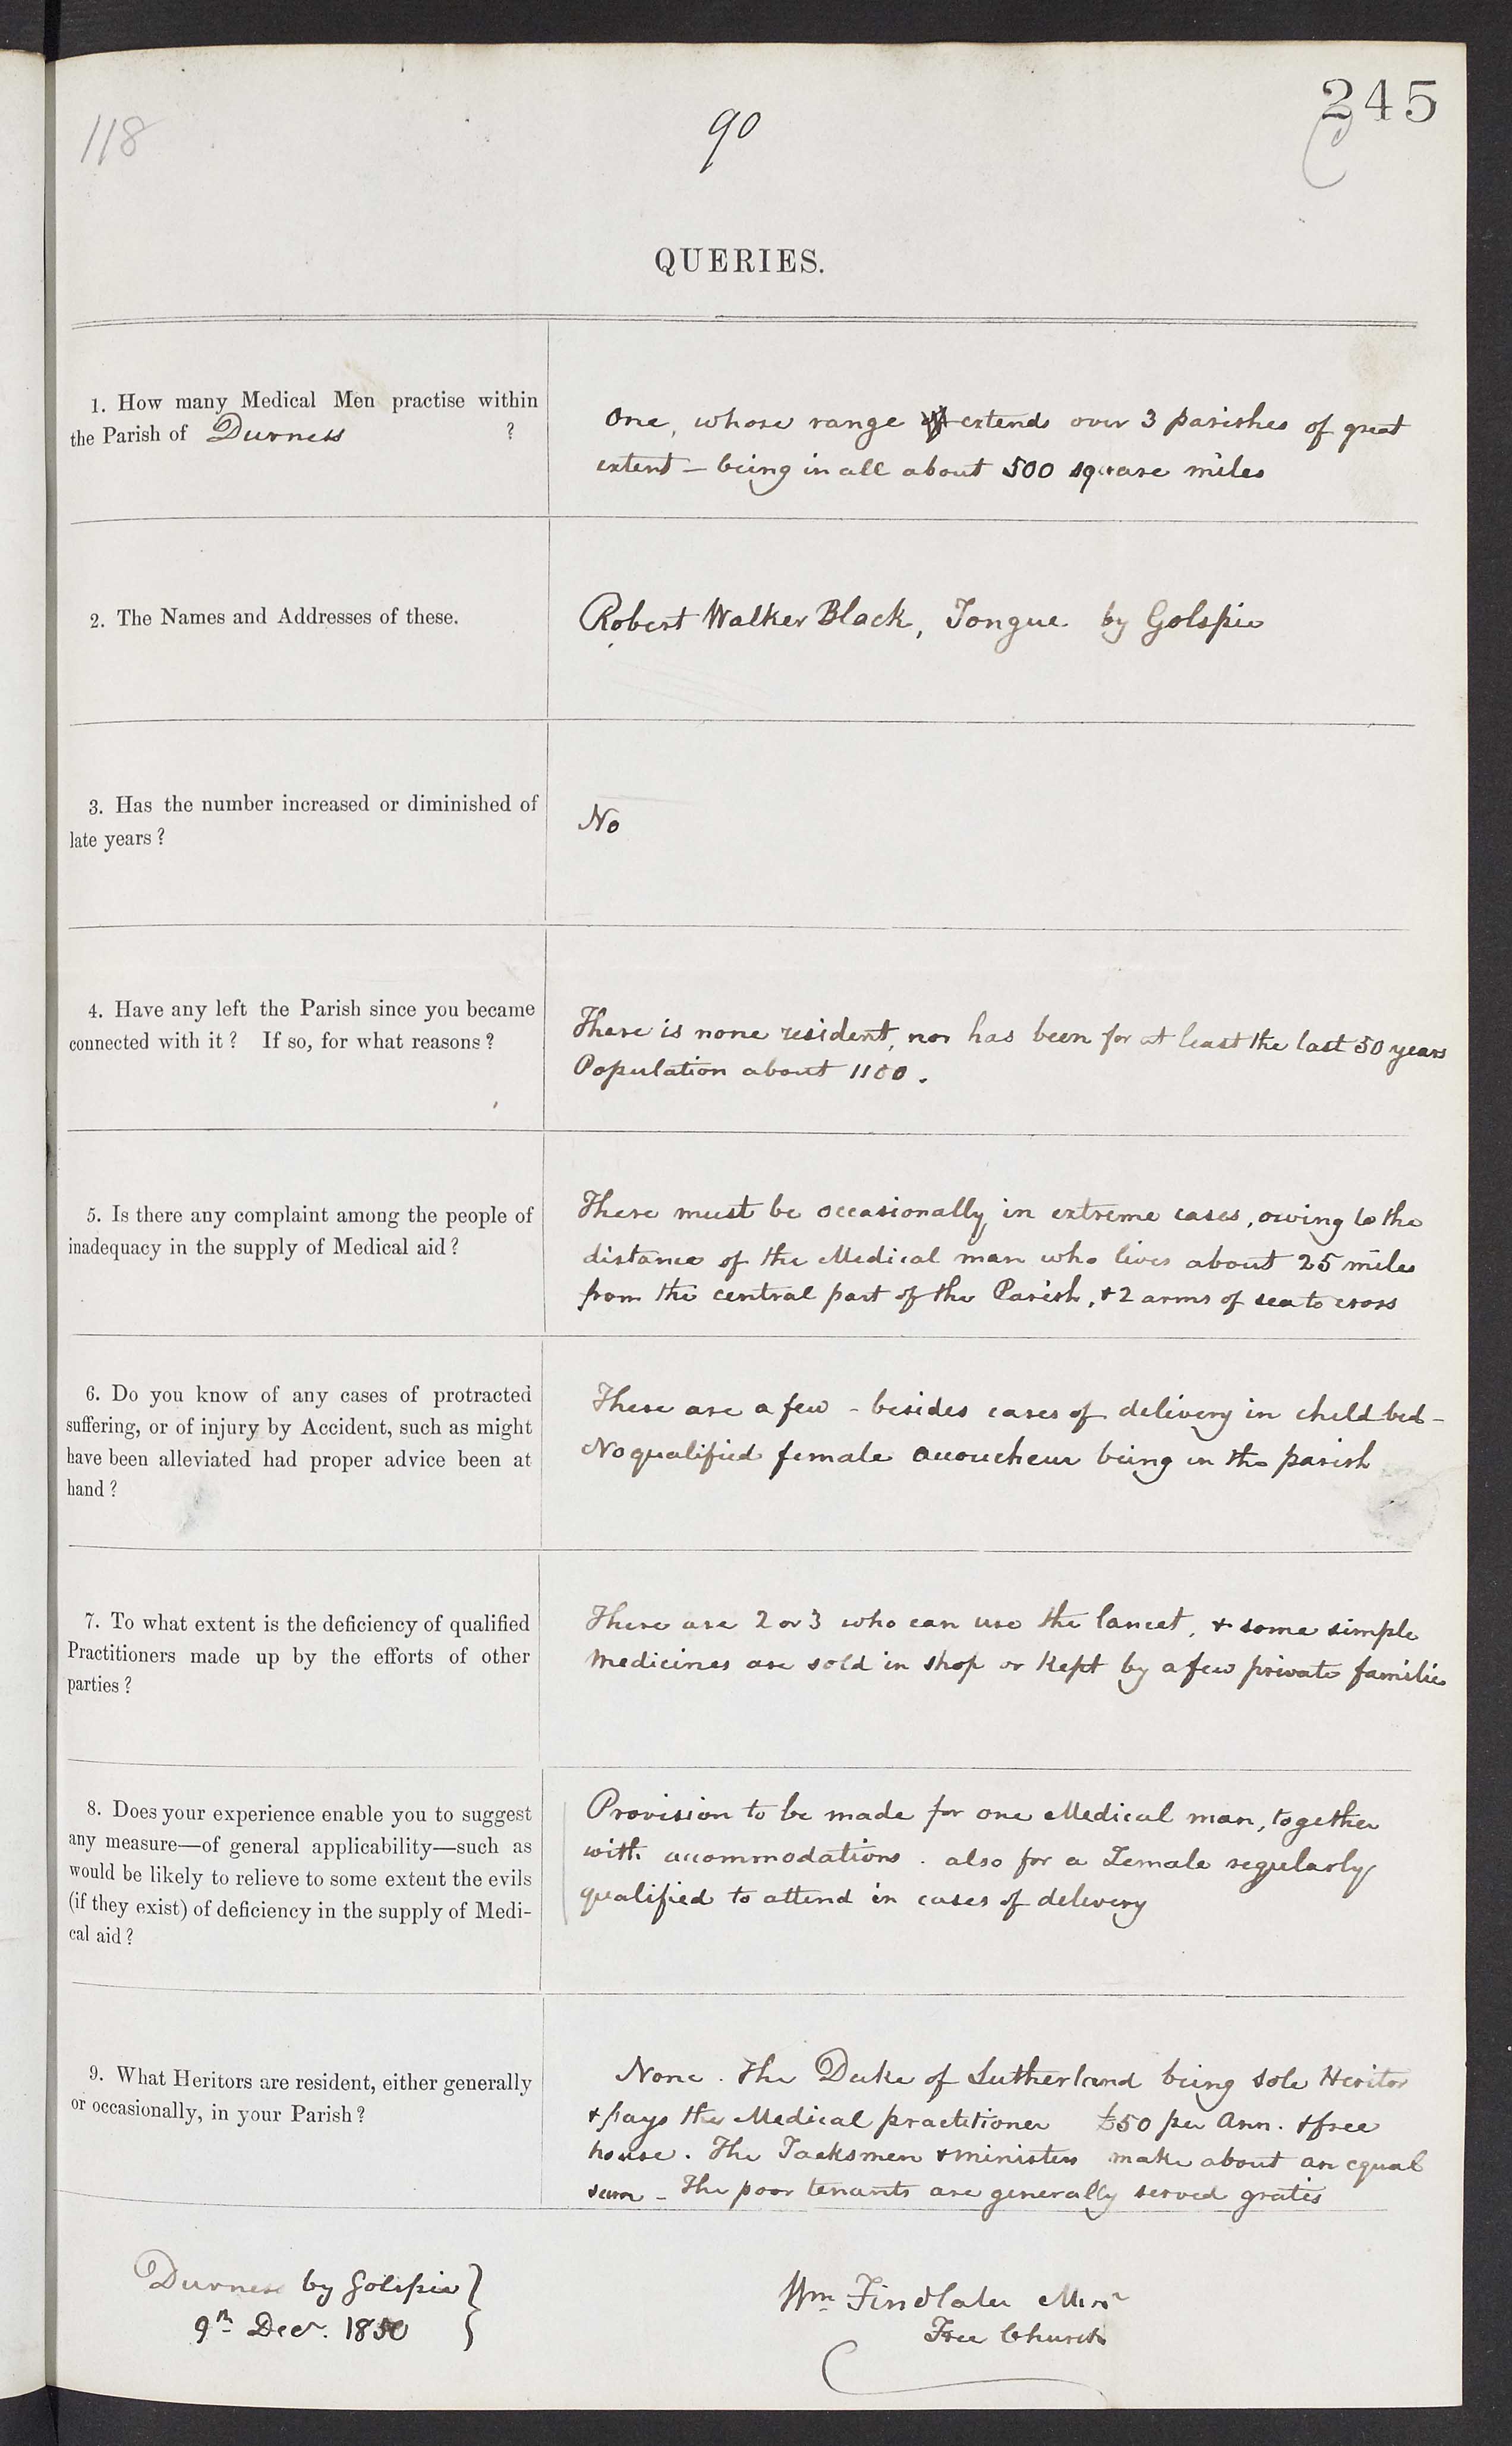 118
90
245
QUERIES.
1. How many Medical Men practise within
the Parish of Durness ?
One, whose range extends over 3 parishes of great
extent – being in all about 500 square miles
2. The Names and Addresses of these.
Robert Walker Black, Tongue by Golspie
3. Has the number increased or diminished of
late years ?
No
4. Have any left the Parish since you became
connected with it ? If so, for what reasons ?
There is none resident, nor has been for at least the last 50 years
Population about 1100.
5. Is there any complaint among the people of
inadequacy in the supply of Medical aid ?
There must be occasionally in extreme cases, owing to the
distance of the Medical man who lives about 25 miles
from the central part of the Parish, & 2 arms of sea to cross
6. Do you know of any cases of protracted
suffering, or of injury by Accident, such as might
have been alleviated had proper advice been at
hand ?
There are a few – besides cases of delivery in child bed –
No qualified female accoucheur being in the parish
7. To what extent is the deficiency of qualified
Practitioners made up by the efforts of other
parties ?
There are 2 or 3 who can use the lancet, & some simple
medicines are sold in shop or kept by a few private families
8. Does your experience enable you to suggest
any measure—of general applicability—such as
would be likely to relieve to some extent the evils
(if they exist) of deficiency in the supply of Medi-
cal aid ?
Provision to be made for one Medical man, together
with accommodations . also for a Female regularly
qualified to attend in cases of delivery
9. What Heritors are resident, either generally
or occasionally, in your Parish ?
None . The Duke of Sutherland being sole Heritor
& pays the Medical practitioner £50 per Ann. & free
house . The Tacksmen & ministers make about an equal
sum – The poor tenants are generally served gratis
Durness by Golspie
9th Decr. 1850
Wm Findlater Minr
Free Church